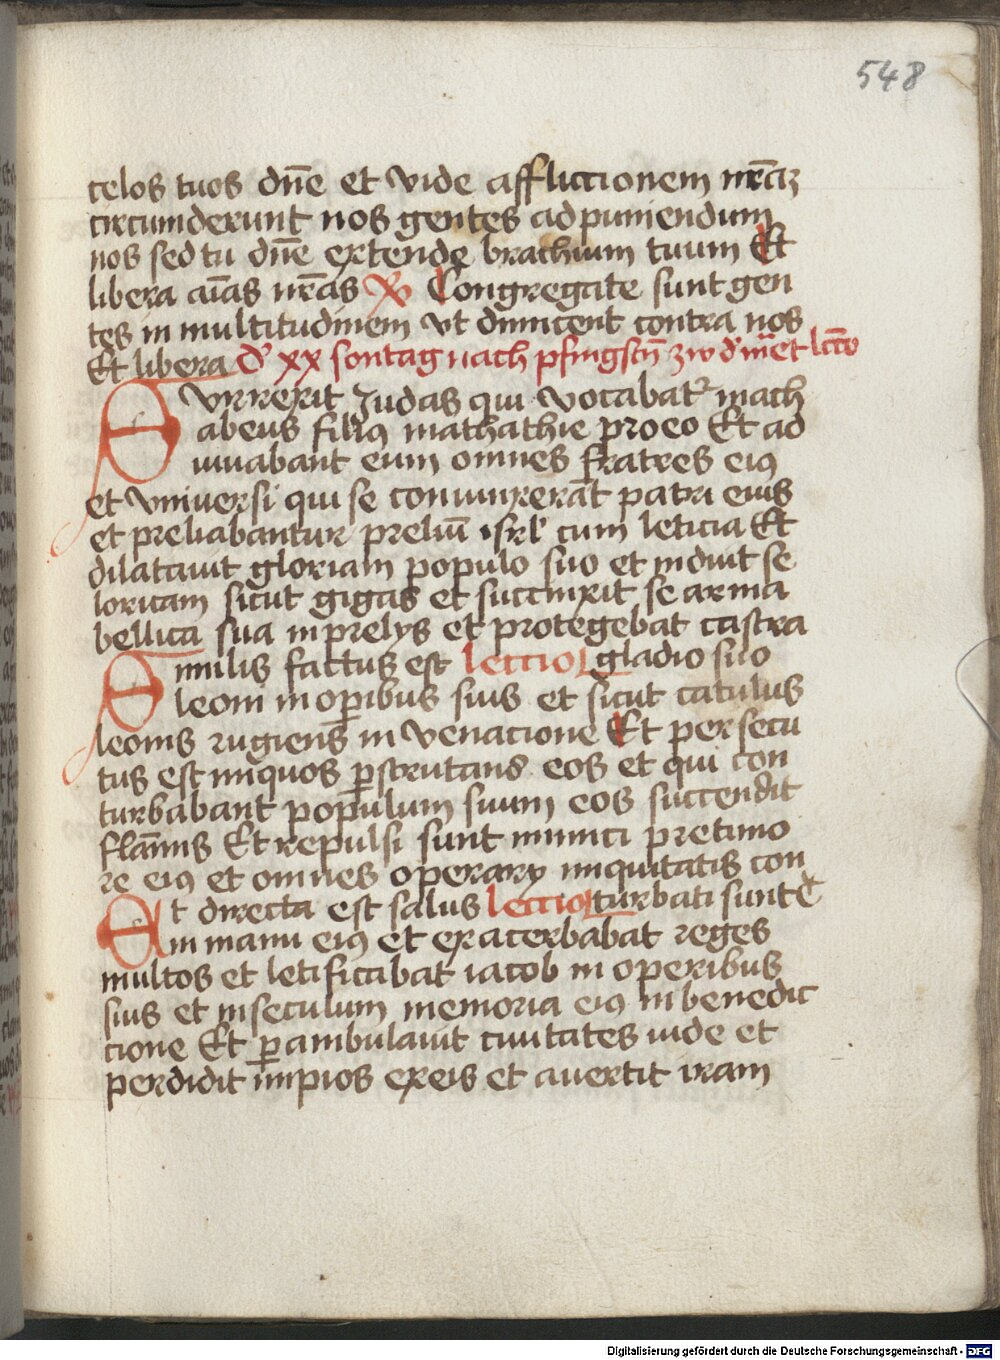 548
celos tuos dn̄e et vide afflictionem nr̄aʒ
circumderunt nos gentes ad puniendum
nos sed tu dn̄e extende brachium tuum Et
libera aīas nr̄as ℣ Congregate sunt gen
tes in multitudinem vt dimicent contra nos
Et libera xx sontag nach pfingstn̄
Surrexit Judas qui vocabatr mach
abeus filiꝰ mathathie pro eo Et ad
iuuabant eum omnes fratres eiꝰ
et vniuersi qui se coniunxerāt patri eius
et preliabantur preliū isrl cum leticia Et
dilatauit gloriam populo suo et induit se
loricam sicut gigas et succinxit se arma
bellica sua in prelys et protegebat castra
Similis factus est lectio gladio suo
leoni in oꝑibus suis et sicut catulus
leonis rugiens in venacione Et persecu
tus est iniquos ꝑscrutans eos et qui con
turbabant populum suum eos succendit
flāmis Et repulsi sunt inimici pre timo
re eiꝰ et omnes operary iniquitatis con
Et directa est salus lectio turbati sunt
in manu eiꝰ et exacerbabat reges
multos et letificabat iacob in operibus
suis et in seculum memoria eiꝰ in benedic
cione Et ꝑambulauit ciuitates iude et
perdidit impios ex eis et auertit iram
Digitalisierung gefördert durch die Deutsche Forschungsgemeinschaft - DFG